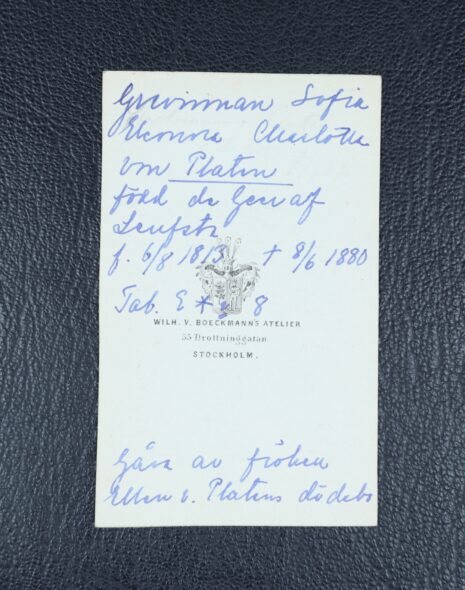 Grevinnan Sofia
Eleonora Charlotta
von Platen
född de Geer af
Leufsta
f. 6/8 1813 † 8/6 1880
Tab. E * 8
WILH. V. BOECKMANNS ATELIER
55 Drottninggatan
STOCKHOLM.
Gåva av fröken
Ellen v. Platens dödsbo